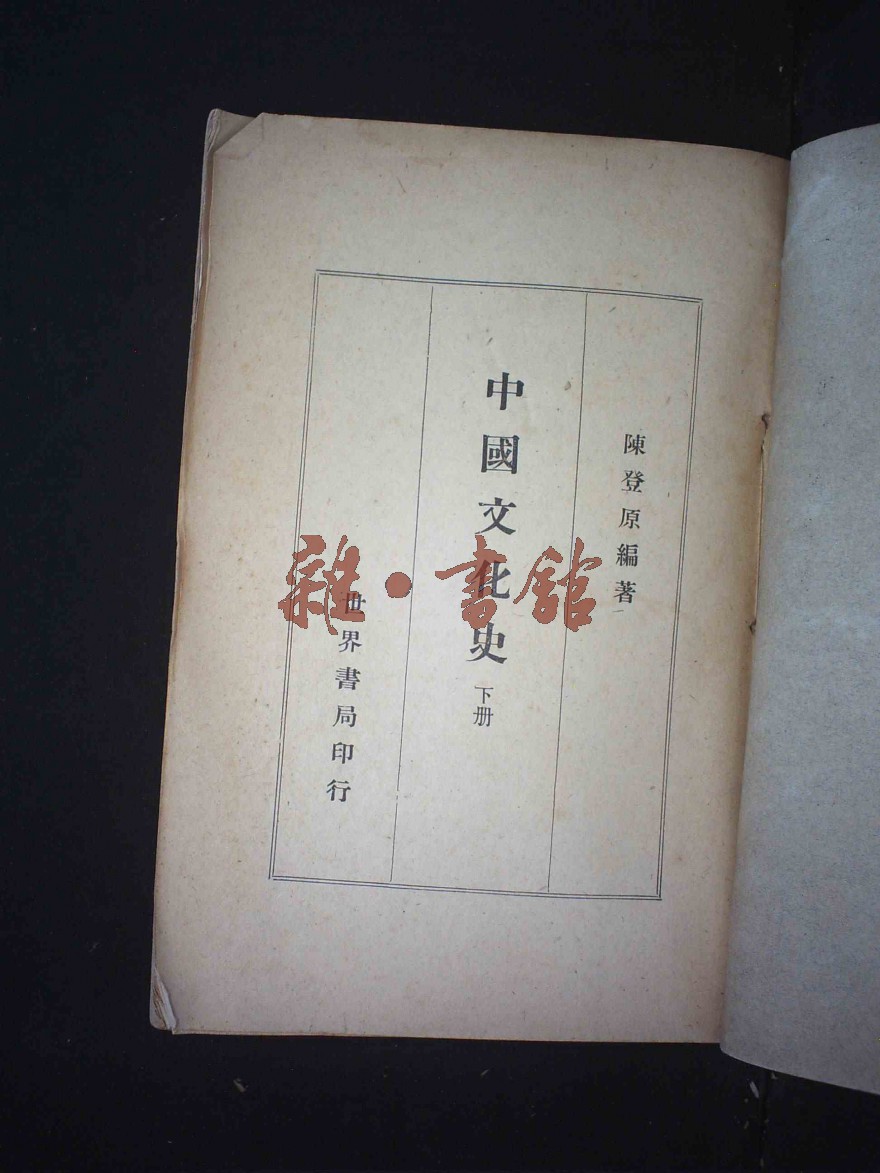 陳登原編著
中國文化史 下册
世界書局印行
雜·書館